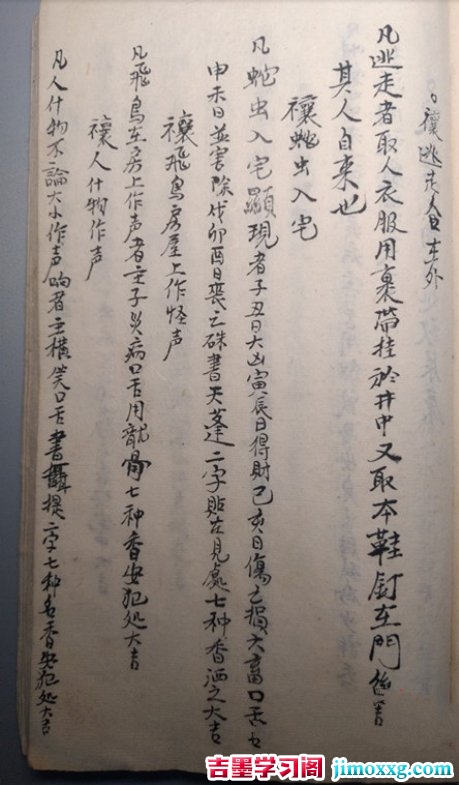 禳逃走人口在外
凡逃走者取人衣服用裹帶挂於井中又取本鞋釘在門
其人自来也
禳蛇虫入宅
凡蛇虫入宅顯現者子丑日大凶寅辰日得財巳亥日傷亡損六畜口舌
申未日並害除戊卯酉日喪亡硃書天蓬二字貼在見處七种香洒之大吉
禳飛鳥房屋上作怪声
凡飛鳥在房上作声者主子災病口舌用龍骨七种香安犯处大吉
禳人什物作声
凡人什物不論大小作声响者主橫笑口舌書攝提二字七种名香安犯处大吉
吉墨学习阁 jimoxxg.com